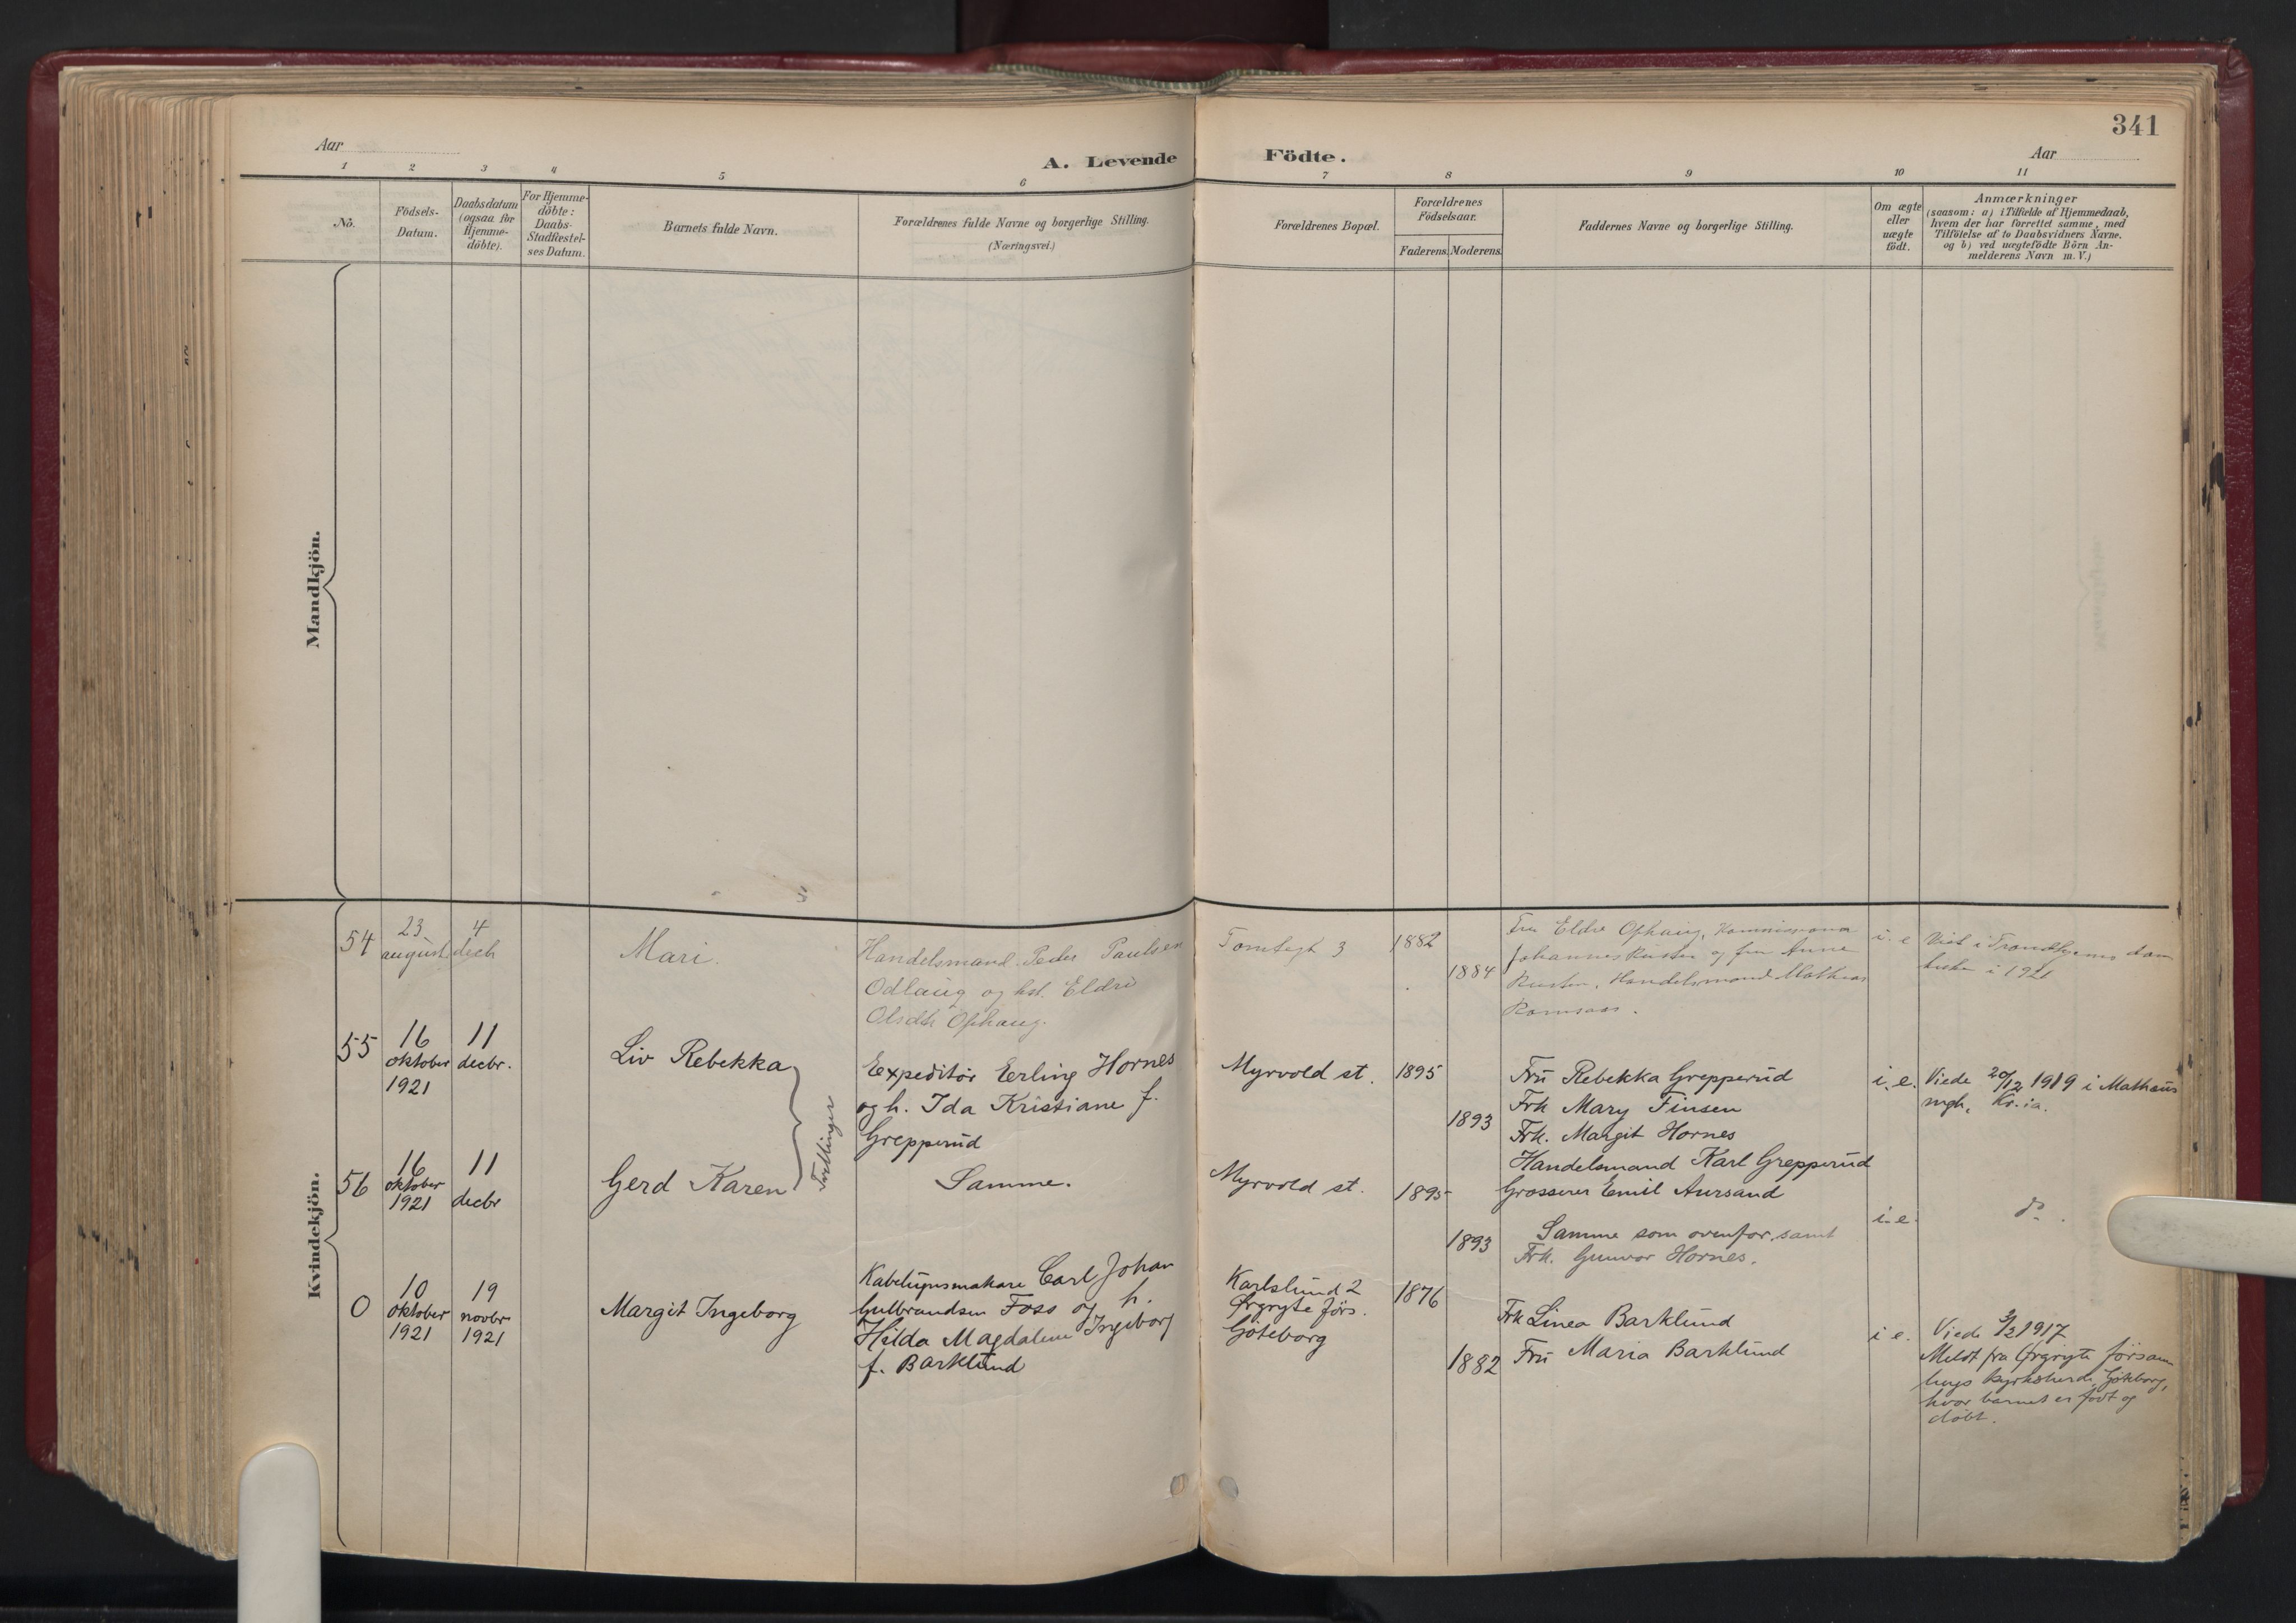 341
Aar
A. Levende Födte.
Aar
1 2 3 4 5 6 7 8 9 10 11
No.
Födsels-
Datum.
Daabsdatum
(ogsaa for
Hjemme-
döbte).
For Hjemme-
döbte:
Daabs-
Stadfæstel-
ses Datum.
Barnets fulde Navn.
Forældrenes fulde Navne og borgerlige Stilling.
(Næringsvei.)
Forældrenes Bopæl.
Forældrenes
Födselsaar.
Faderens. Moderens.
Faddernes Navne og borgerlige Stilling.
Om ægte
eller
uægte
födt.
Anmærkninger
(saasom: a) i Tilfælde af Hjemmedaab,
hvem der har forrettet samme, med
Tilföielse af to Daabsvidners Navne.
og b) ved uægtefödte Börn An-
melderens Navn m. V.)
Mandkjön.
Kvindekjön.
54
23
august
4
Mari.
Handelsmand Peder Paulsen
Odlaug og hst. Eldri
Olsdtr Ophaug.
Tomtegt 3
1882
1884
Fru Eldre Ophaug,
Johannes Rusten og fru Anne
Rusten, Handelsmand Mathias
i. e
Viet i Trondhjems dom
kirke i 1921
55
16
oktober
1921
11
decbr.
Liv Rebekka
Tvillinger
Expeditör Erling Hornes
og h. Ida Kristiane f.
Grepperud
Myrvold st.
1895
1893
Fru Rebekka Grepperud
Frk Mary Finsen
Frk. Margit Hornes
Handelsmand Karl Grepperud
Grosserer Emil Aursand
i. e.
Viede 20/12 1919 i Mathæus
mgh. Kr.ia.
56
16
oktober
1921
11
decbr
Gerd Karen
Samme.
Myrvold st.
1895
1893
Samme som ovenfor, samt
Frk. Gunvor Hornes.
i. e.
do.
0
10
oktober
1921
19
novbr
1921
Margit Ingeborg
Kabeltynsmakare Carl Johan
Gulbrandsen Foss og h.
Hilda Magdalene Ingeborg
f. Barklund
Karlslund 2
Ørgryte förs.
Göteborg
1876
1882
Frk Linea Barklund
Fru Maria Barklund
i e.
Viede 1917
Meldt fra Ørgryte församlings
kyrkoherde, Göteborg,
hvor barnet er født og
døbt.